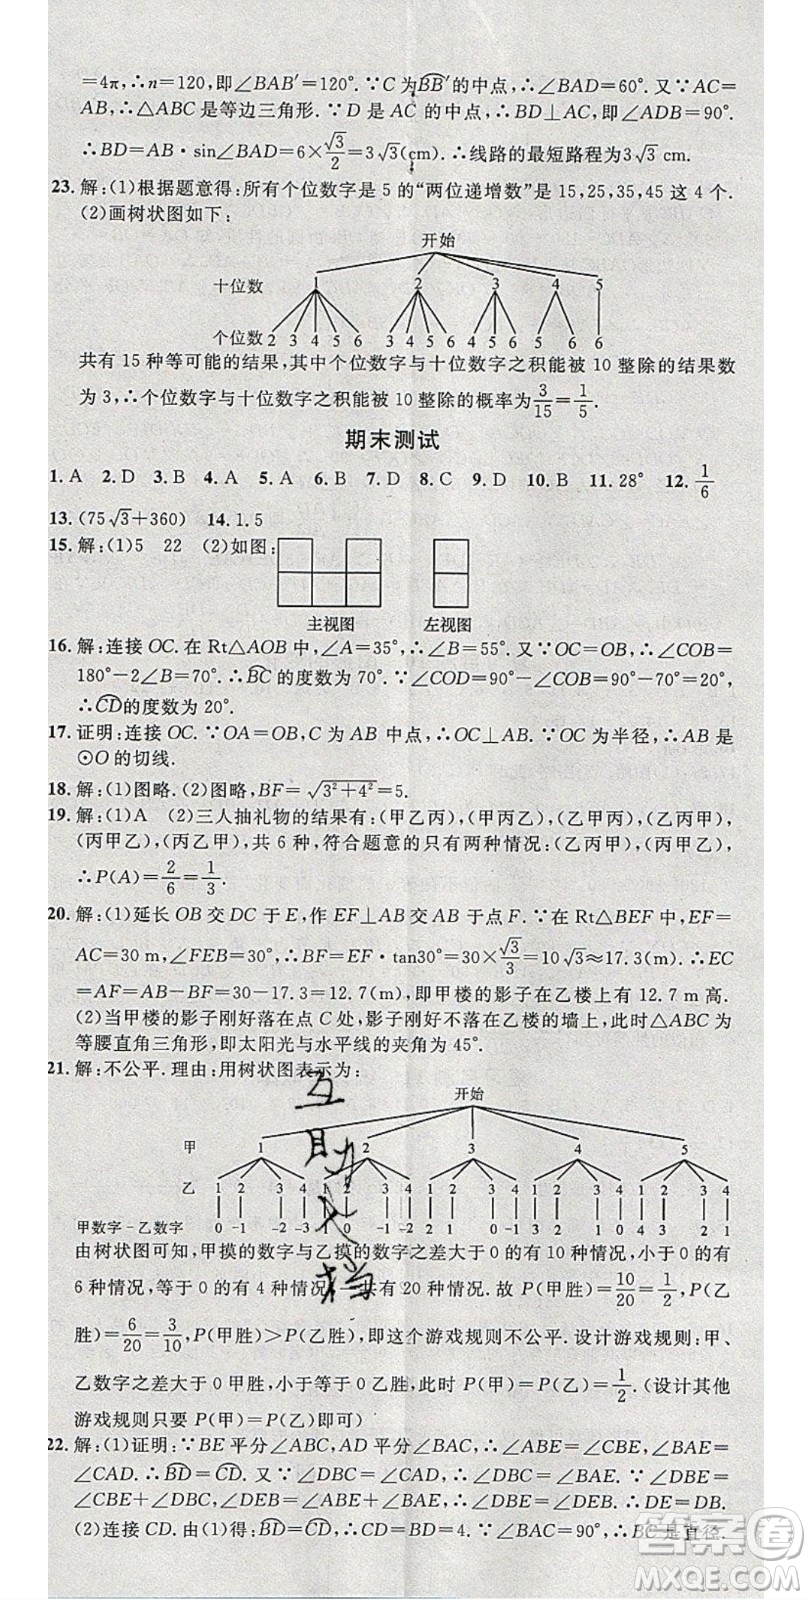 =4π,∴n=120,即∠BAB′=120°.∵C为BB′的中点,∴∠BAD=60°.又∵AC=
AB,∴△ABC是等边三角形.∵D是AC的中点,∴BD⊥AC,即∠ADB=90°.
∴BD=AB·sin∠BAD=6×√3/2=3√3(cm).∴线路的最短路程为3√3 cm.
23.解:(1)根据题意得:所有个位数字是5的“两位递增数”是15,25,35,45这4个.
(2)画树状图如下:
开始
十位数 1 2 3 4 5
个位数 2 3 4 5 6 3 4 5 6 4 5 6 5 6 6
共有15种等可能的结果,其中个位数字与十位数字之积能被10整除的结果数
为3,∴个位数字与十位数字之积能被10整除的概率为3/15=1/5.
期末测试
1.A 2.D 3.B 4.A 5.A 6.B 7.D 8.C 9.D 10.B 11.28° 12.1/6
13.(75√3+360) 14.1.5
15.解:(1)5 22 (2)如图:
主视图 左视图
16.解:连接OC.在Rt△AOB中,∠A=35°,∴∠B=55°.又∵OC=OB,∴∠COB=
180°-2∠B=70°.∴BC的度数为70°.∵∠COD=90°-∠COB=90°-70°=20°,
∴CD的度数为20°.
17.证明:连接OC.∵OA=OB,C为AB中点,∴OC⊥AB.∵OC为半径,∴AB是
⊙O的切线.
18.解:(1)图略.(2)图略,BF=√(3²+4²)=5.
19.解:(1)A (2)三人抽礼物的结果有:(甲乙丙),(甲丙乙),(乙甲丙),(乙丙甲),
(丙甲乙),(丙乙甲),共6种,符合题意的只有两种情况:(乙丙甲),(丙甲乙),
∴P(A)=2/6=1/3.
20.解:(1)延长OB交DC于E,作EF⊥AB交AB于点F.∵在Rt△BEF中,EF=
AC=30 m,∠FEB=30°,∴BF=EF·tan30°=30×√3/3=10√3≈17.3(m).∴EC
=AF=AB-BF=30-17.3=12.7(m),即甲楼的影子在乙楼上有12.7 m高.
(2)当甲楼的影子刚好落在点C处,影子刚好不落在乙楼的墙上,此时△ABC为
等腰直角三角形,即太阳光与水平线的夹角为45°.
21.解:不公平.理由:用树状图表示为:
开始
甲 1 2 3 4 5
乙 1 2 3 4 1 2 3 4 1 2 3 4 1 2 3 4 1 2 3 4
甲数字-乙数字 0 -1 -2 -3 1 0 -1 -2 2 1 0 -1 3 2 1 0 4 3 2 1
由树状图可知,甲摸的数字与乙摸的数字之差大于0的有10种情况,小于0的有
6种情况,等于0的有4种情况.一共有20种情况.故P(甲胜)=10/20=1/2,P(乙
胜)=6/20=3/10,P(甲胜)>P(乙胜),即这个游戏规则不公平.设计游戏规则:甲、
乙数字之差大于0甲胜,小于等于0乙胜,此时P(甲)=P(乙)=1/2.(设计其他
游戏规则只要P(甲)=P(乙)即可)
22.解:(1)证明:∵BE平分∠ABC,AD平分∠BAC,∴∠ABE=∠CBE,∠BAE=
∠CAD.∴BD=CD.又∵∠DBC=∠CAD,∴∠DBC=∠BAE.∵∠DBE=
∠CBE+∠DBC,∠DEB=∠ABE+∠BAE,∴∠DBE=∠DEB.∴DE=DB.
(2)连接CD.由(1)得:BD=CD,∴CD=BD=4.∵∠BAC=90°,∴BC是直径.
互助文档
答案圈
MXQE.COM